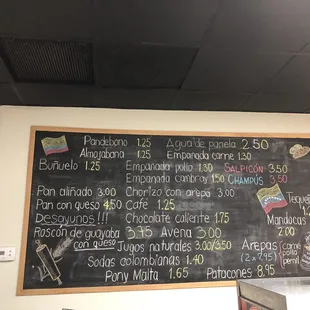 Pandebono 1.25 Agua de panela 2.50
Almojabana 1.25 Empanada carne 1.30
Buñuelo 1.25 Empanada pollo 1.30 SALPICÓN 3.50
Empanada cambray 1.50 CHAMPUS 3.50
Pan aliñado 3.00 Chorizo con arepa 3.00
Pan con queso 4.50 Café 1.25
Desayunos !!! Chocolate caliente 1.75 Mandocas
Roscón de guayaba 3.75 Avena 3.00 2.00
con queso Jugos naturales 3.00/3.50 Arepas
Sodas colombianas 1.40 (2 x 295) carne pollo pernil
Pony Malta 1.65 Patacones 8.95